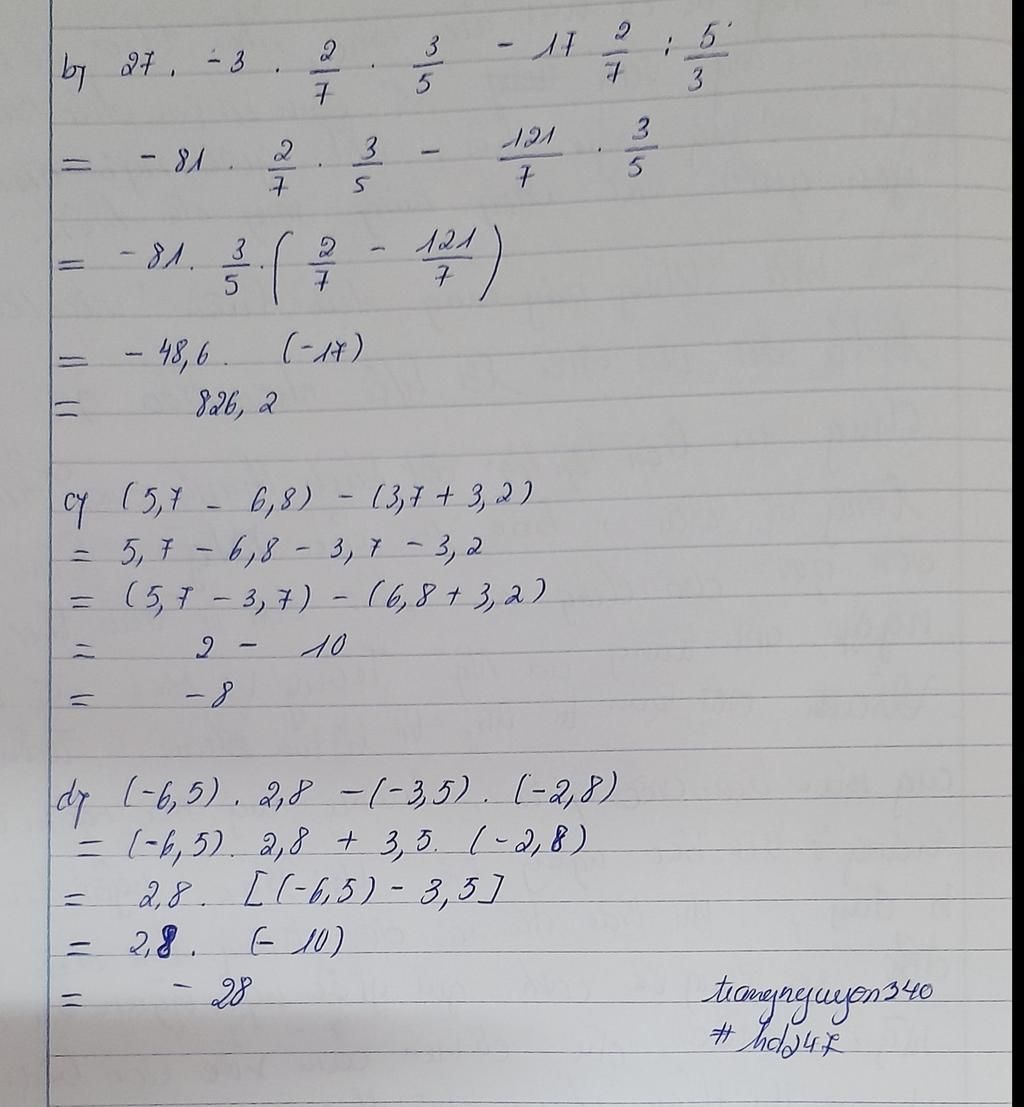 b) 27 . -3 . 2/7 . 3/5 - 17 2/7 : 5/3
= -81 . 2/7 . 3/5 - 121/7 . 3/5
= -81 . 3/5 . ( 2/7 - 121/7 )
= -48,6 . (-17)
= 826,2
c) (5,7 - 6,8) - (3,7 + 3,2)
= 5,7 - 6,8 - 3,7 - 3,2
= (5,7 - 3,7) - (6,8 + 3,2)
= 2 - 10
= -8
d) (-6,5) . 2,8 - (-3,5) . (-2,8)
= (-6,5) . 2,8 + 3,5 . (-2,8)
= 2,8 . [(-6,5) - 3,5]
= 2,8 . (- 10)
= - 28
trangnguyen340
# hd247